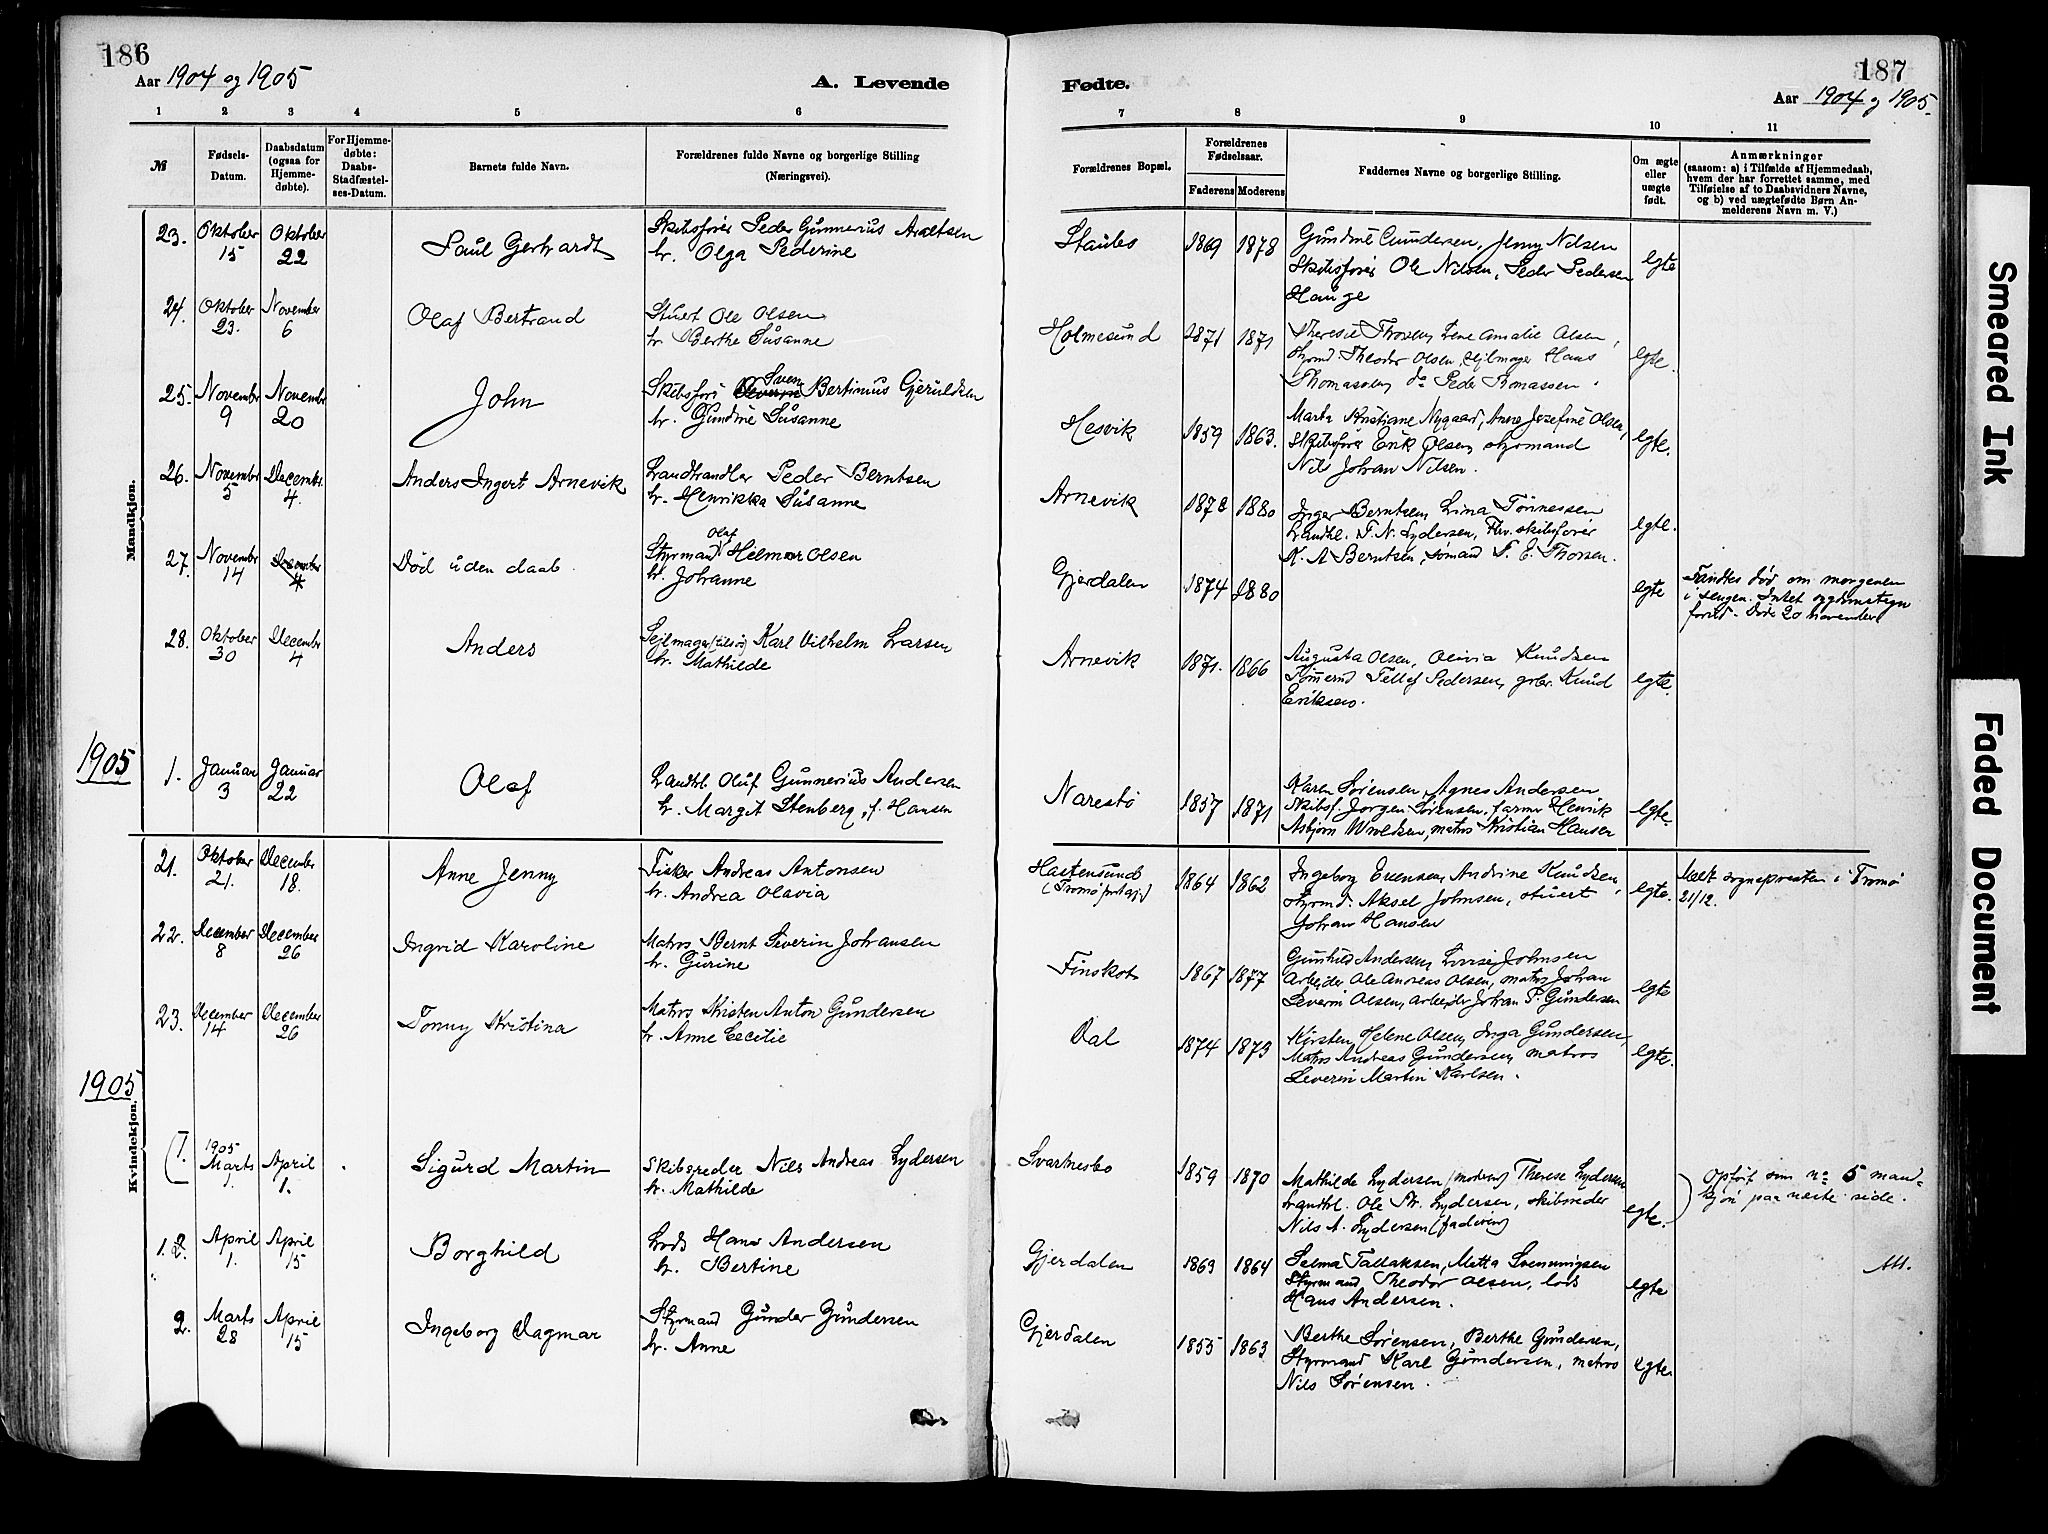 186
Aar 1904 og 1905
A. Levende
1 2 3 4 5 6
№
Fødsels-
Datum.
Daabsdatum
(ogsaa for
Hjemme-
døbte).
For Hjemme-
døbte:
Daabs-
Stadfæstel-
ses-Datum.
Barnets fulde Navn.
Forældrenes fulde Navne og borgerlige Stilling
(Næringsvei).
Mandkjøn.
23. Oktober 15 Oktober 22
Paul Gerhardt
Skibsfører Peder Gunnerius
h. Olga Pederine
24. Oktober 23. November 6
Olaf Bertrand
Stuert Ole Olsen
h. Berthe Susanne
25. Novembr 9 Novembr 20
John
Skibsfører Sven Bertinius Gjeruldsen
h. Gundine Susanne
26. Novembr 5 Decembr. 4.
Anders Ingert Arnevik
Landhandler Peder Berntsen
h. Henrikka Susanne
27. Novembr 14 December 4
Død uden daab.
Styrmand Olaf Helmer Olsen
h. Johanne
28. Oktober 30 December 4
Anders
Sejlmager (tilsø) Karl Vilhelm Larsen
h. Mathilde
1905
1. Januar 3 Januar 22
Olaf
Landhl. Oluf Gunnerius Andersen
h. Margit Stenberg, f. Hansen
21. Oktober 21. December 18.
Anne Jenny
Fisker Andreas Antonsen
h. Andrea Olavia
22. December 8 December 26
Ingrid Karoline
Matros Bernt Severin Johansen
h. Gurine
23. December 14 December 26
Tonny Kristina
Matros Kristen Anton Gundersen
h. Anne Cecilie
1905
Kvindekjøn.
1. 1905 Marts 1. April 1.
Sigurd Martin
Skibsreder Nils Andreas Lydersen
h. Mathilde
1. 2. April 1. April 15
Borghild
Lods Hans Andersen
h. Bertine
2. Marts 28 April 15
Ingeborg Dagmar
Styrmand Gunder Gundersen
h. Anne
187
Fødte.
Aar 1904 og 1905.
7 8 9 10 11
Forældrenes Bopæl.
Forældrenes
Fødselsaar.
Faderens Moderens
Faddernes Navne og borgerlige Stilling.
Om ægte
eller
uægte
født.
Anmærkninger
(saasom: a) i Tilfælde af Hjemmedaab,
hvem der har forrettet samme, med
Tilføielse af to Daabsvidners Navne,
og b) ved uægtefødte Børn An-
melderens Navn m. V.)
Staubø 1869 1878
Gundine Gundersen, Jenny Nilsen
Skibsfører Ole Nilsen, Peder Pedersen
Hauge
egte
Holmesund 1871 1871
Theresie Thorsen, Lene Amalie Olsen,
styrmd Theodor Olsen, sejlmager Hans
Thomassen, do Peder Tomassen.
egte.
Hesvik 1859 1863.
Marta Kristiane Nygaard, Anne Josefine Olsen,
Skibsfører Erik Olsen, styrmand
Nils Johan Nilsen.
egte.
Arnevik 1878 1880
Inger Berntsen, Lina Tønnessen
Landhl. T. N. Lydersen, fhv. skibsfører
K. A Berntsen, sømand T. E. Thorsen.
egte.
Gjerdalen 1874 1880
egte
Fandtes død om morgenen
i sengen. Intet sygdomstegn
forud. Døde 20 november
Arnevik 1871. 1866
Augusta Olsen, Olivia Knudsen
Tømermd Tellef Pedersen, grbr. Knud
Eriksen.
egte.
Narestø 1857 1871
Karen Sørensen, Agnes Andersen
Skibsf. Jørgen Sørensen, farmer Henrik
Asbjørn Wroldsen, matros Kristian Hansen
egte.
Hastensund
(Tromø prstgj.) 1864 1862
Ingeborg Evensen, Andrine Knudsen,
styrmd. Aksel Johnsen, stuert
Johan Hansen
egte.
Meldt sognepresten i Tromø
21/12.
Finskot 1867 1877
Gunhild Andersen, Lovise Johnsen
Arbejder Ole Andreas Olsen, matros Johan
Severin Olsen, arbejder Johan P. Gundersen
egte
Dal 1874 1873
Kirsten Helene Olsen, Inga Gundersen,
Matros Andreas Gundersen, matros
Severin Martin Karlsen.
egte.
Svartnesbo 1859 1870
Mathilde Lydersen (moderen) Therese Lydersen
Landhl. Ole Th. Lydersen, skibsreder
Nils A. Lydersen (faderen)
egte.
Opført som no 5 mand-
kjøn paa næste side.
Gjerdalen 1863 1864
Selma Tallaksen, Metta Svenningsen
Styrmand Theodor Olsen, lods
Hans Andersen.
egte
Gjerdalen 1855 1863
Berthe Sørensen, Berthe Gundersen,
Styrmand Karl Gundersen, matros
Nils Sørensen.
egte.
Smeared Ink
Faded Document